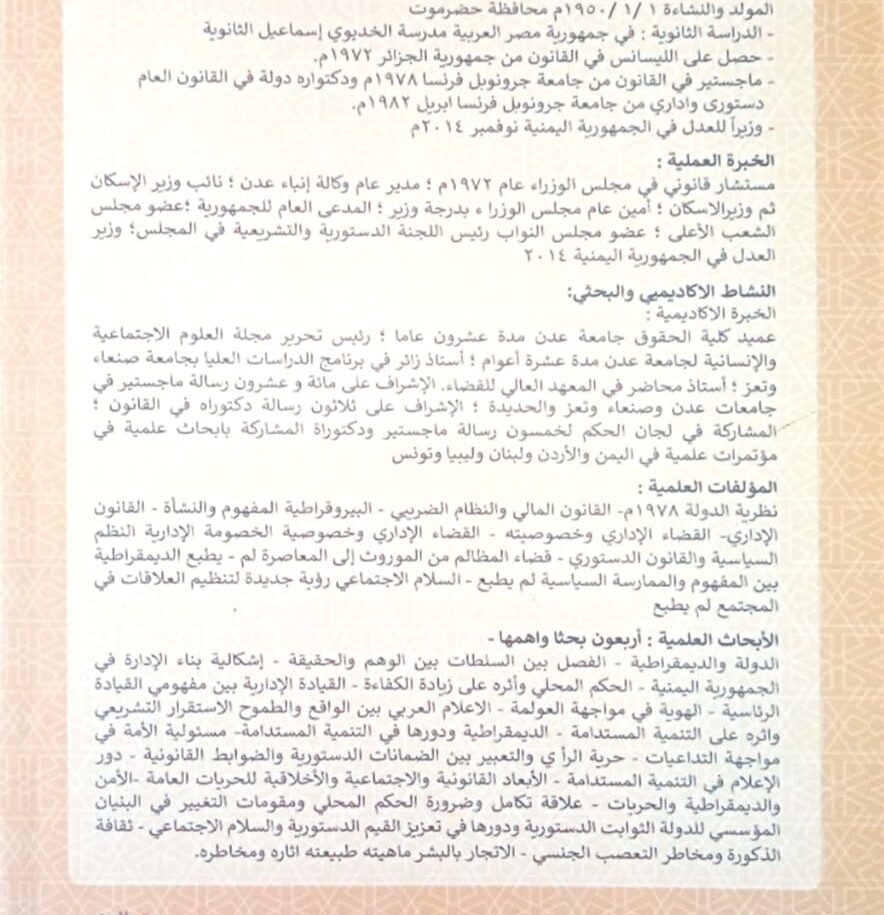 المولد والنشاءة ١ /١ /١٩٥٠م محافظة حضرموت
- الدراسة الثانوية : في جمهورية مصر العربية مدرسة الخديوي إسماعيل الثانوية
- حصل على الليسانس في القانون من جمهورية الجزائر ١٩٧٢م.
- ماجستير في القانون من جامعة جرونوبل فرنسا ١٩٧٨م ودكتواره دولة في القانون العام
دستورى واداري من جامعة جرونوبل فرنسا ابريل ١٩٨٢م.
- وزيراً للعدل في الجمهورية اليمنية نوفمبر ٢٠١٤م
الخبرة العملية :
مستشار قانوني في مجلس الوزراء عام ١٩٧٢م ؛ مدير عام وكالة إنباء عدن ؛ نائب وزير الإسكان
ثم وزيرالاسكان ؛ أمين عام مجلس الوزرا ء بدرجة وزير ؛ المدعى العام للجمهورية ؛عضو مجلس
الشعب الأعلى ؛ عضو مجلس النواب رئيس اللجنة الدستورية والتشريعية في المجلس؛ وزير
العدل في الجمهورية اليمنية ٢٠١٤
النشاط الاكاديميي والبحثي:
الخبرة الاكاديمية :
عميد كلية الحقوق جامعة عدن مدة عشرون عاما ؛ رئيس تحرير مجلة العلوم الاجتماعية
والإنسانية لجامعة عدن مدة عشرة أعوام ؛ أستاذ زائر في برنامج الدراسات العليا بجامعة صنعاء
وتعز ؛ أستاذ محاضر في المعهد العالي للقضاء. الإشراف على مائة و عشرون رسالة ماجستير في
جامعات عدن وصنعاء وتعز والحديدة ؛ الإشراف على ثلاثون رسالة دكتوراه في القانون ؛
المشاركة في لجان الحكم لخمسون رسالة ماجستير ودكتوراة المشاركة بابحاث علمية في
مؤتمرات علمية في اليمن والأردن ولبنان وليبيا وتونس
المؤلفات العلمية :
نظرية الدولة ١٩٧٨م- القانون المالي والنظام الضريبي - البيروقراطية المفهوم والنشأة - القانون
الإداري- القضاء الإداري وخصوصيته - القضاء الإداري وخصوصية الخصومة الإدارية النظم
السياسية والقانون الدستوري - قضاء المظالم من الموروث إلى المعاصرة لم - يطبع الديمقراطية
بين المفهوم والممارسة السياسية لم يطبع - السلام الاجتماعي رؤية جديدة لتنظيم العلاقات في
المجتمع لم يطبع
الأبحاث العلمية : أربعون بحثا واهمها -
الدولة والديمقراطية - الفصل بين السلطات بين الوهم والحقيقة - إشكالية بناء الإدارة في
الجمهورية اليمنية - الحكم المحلي وأثره على زيادة الكفاءة - القيادة الإدارية بين مفهومي القيادة
الرئاسية - الهوية في مواجهة العولمة - الاعلام العربي بين الواقع والطموح الاستقرار التشريعي
واثره على التنمية المستدامة - الديمقراطية ودورها في التنمية المستدامة- مسئولية الأمة في
مواجهة التداعيات - حرية الرأ ي والتعبير بين الضمانات الدستورية والضوابط القانونية - دور
الإعلام في التنمية المستدامة - الأبعاد القانونية والاجتماعية والأخلاقية للحريات العامة -الأمن
والديمقراطية والحريات - علاقة تكامل وضرورة الحكم المحلي ومقومات التغيير في البنيان
المؤسسي للدولة الثوابت الدستورية ودورها في تعزيز القيم الدستورية والسلام الاجتماعي - ثقافة
الذكورة ومخاطر التعصب الجنسي - الاتجار بالبشر ماهيته طبيعته اثاره ومخاطره.